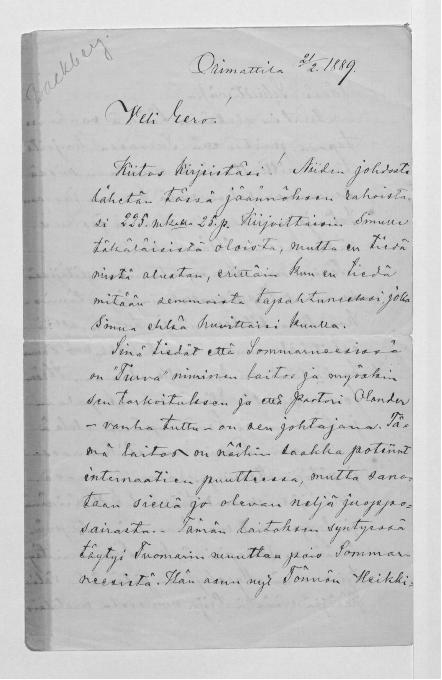 Backberg.
Orimattila 21/2. 1889.
Veli Eero.
Kiitos kirjeistäsi! Niiden johdosta
lähetän tässä jäännöksen rahoista-
si 225. mkaa 25. p. Kirjoittaisin Sinulle
täkäläisistä oloista, mutta en tiedä
mistä alustan, erittäin kun en tiedä
mitään semmoista tapahtuneeksi joka
Sinua ehkä huvittaisi kuulla.
Sinä tiedät että Sommarneesissä
on "Turva" niminen laitos ja myöskin
sen tarkoituksen ja että pastori Olander
- vanha tuttu - on sen johtajana. Tä-
mä laitos on näihin saakka potenut
internaatien puutteessa, mutta sano-
taan siellä jo olevan neljä juoppo-
sairasta. - Tämän laitoksen syntyessä
täytyi Tuomarin muuttaa pois Sommar-
neesistä. Hän asuu nyt Tönnön Heikki-